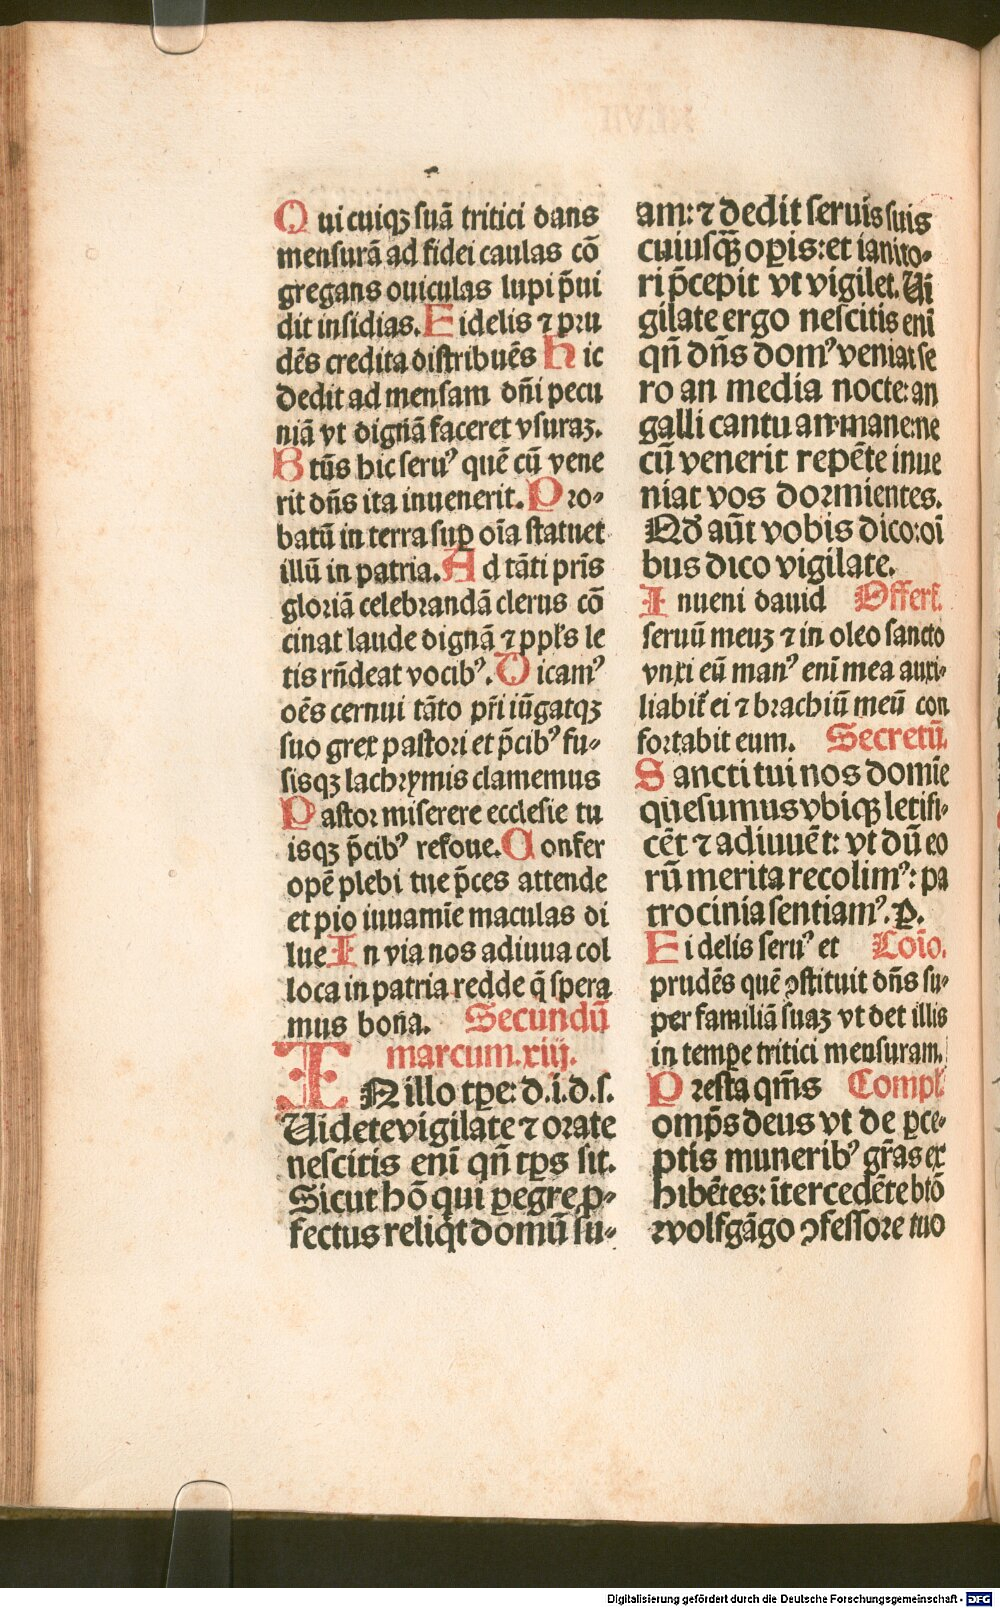 Qui cuiqꝫ suā tritici dans
mensurā ad fidei caulas cō
gregans ouiculas lupi p̄ui
dit insidias. Fidelis ⁊ pru
dēs credita distribuēs Hic
dedit ad mensam dn̄i pecu
niā vt dignā faceret vsuraꝫ.
Btūs hic seruꝰ quē cū vene
rit dn̄s ita inuenerit. Pro⸗
batū in terra suꝑ oīa statuet
illū in patria. Ad tāti pr̄is
gloriā celebrandā clerus cō
cinat laude dignā ⁊ ppl̄s le
tis rn̄deat vocibꝰ. Dicamꝰ
oēs cernui tāto pr̄i iūgatqꝫ
suo grex pastori et p̄cibꝰ fu⸗
sisqꝫ lachrymis clamemus
Pastor miserere ecclesie tu
isqꝫ p̄cibꝰ refoue. Confer
opē plebi tue p̄ces attende
et pio iuuamīe maculas di
lue In via nos adiuua col
loca in patria redde q̄ spera
mus bona. Secundū
marcum. xiij.
IN illo tꝑe: d. i. d. s.
Uidete vigilate ⁊ orate
nescitis enī qn̄ tp̄s sit.
Sicut hō qui ꝑegre ꝓ⸗
fectus reliq̇t domū su⸗
am: ⁊ dedit seruis suis
cuiusqꝫ oꝑis: et ianito⸗
ri p̄cepit vt vigilet. Ui
gilate ergo nescitis enī
qn̄ dn̄s domꝰ veniat se
ro an media nocte: an
galli cantu an mane: ne
cū venerit repēte inue
niat vos dormientes.
Qd̄ aūt vobis dico: oī
bus dico vigilate.
Inueni dauid Offert.
seruū meuꝫ ⁊ in oleo sancto
vnxi eū manꝰ enī mea auxi⸗
liabit̄ ei ⁊ brachiū meū con
fortabit eum. Secretū.
Sancti tui nos domīe
quesumus vbiqꝫ letifi⸗
cēt ⁊ adiuuēt: vt dū eo
rū merita recolimꝰ: pa
trocinia sentiamꝰ. P.
Fidelis seruꝰ et Cōio.
prudēs quē ↄstituit dn̄s su⸗
per familiā suaꝫ vt det illis
in tempe tritici mensuram.
Presta qm̄s Compl̄.
omp̄s deus vt de ꝑce⸗
ptis muneribꝰ gr̄as ex
hibētes: īntercedēte btō
wolfgāgo ↄfessore tuo
Digitalisierung gefördert durch die Deutsche Forschungsgemeinschaft - DFG